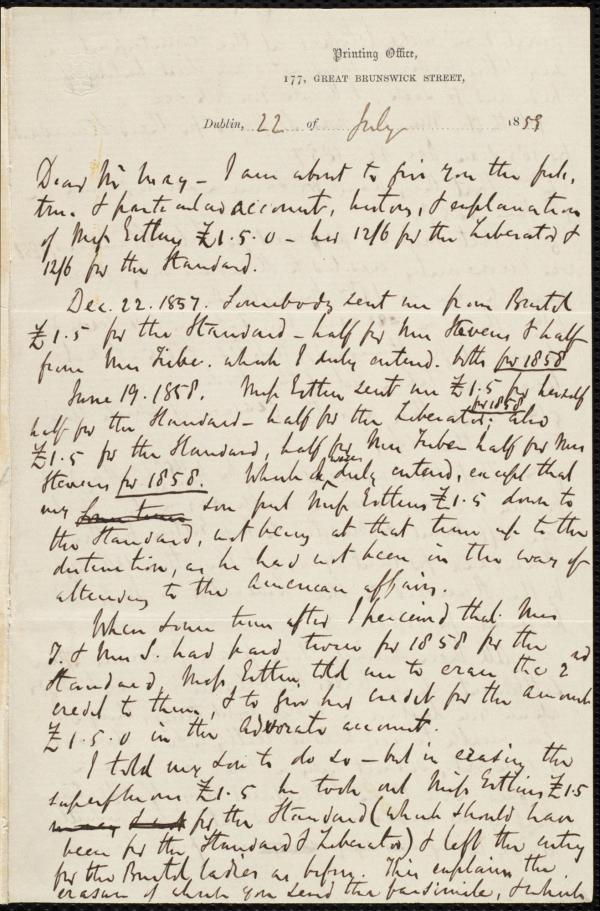 Printing Office,
177, GREAT BRUNSWICK STREET,
Dublin, 22 of July 1859
Dear Mr May - I am about to give you the full,
true & particular account, history, & explanation
of Miss Estlin's £1.5.0 - her 12/6 for the Liberator &
12/6 for the Standard.
Dec. 22. 1857. Somebody sent me from Bristol
£1.5 for the Standard - half for Mrs Stevens & half
from Mrs which I duly entered. Both for 1858
June 19. 1858. Miss Estlin sent me £1.5 for herself
for 1858
half for the Standard - half for the Liberator; also
£1.5 for the Standard, half for Mrs half for Mrs
Stevens for 1858. Which was duly entered, except that
my son put Miss Estlin's £1.5 down to
the Standard, not being at that time up to the
distinction, as he had not been in the way of
attending to the American affairs.
When some time after I perceived that Mrs
T. & Mrs S. had paid twice for 1858 for the
Standard, Miss Estlin told me to erase the 2nd
credit to them, & to give her credit for the amount
£1.5.0 in the Advocate account.
I told my son to do so - but in erasing the
superfluous £1.5 he took out Miss Estlin's £1.5
for the Standard (which should have
been for the Standard & Liberator) & left the entry
for the Bristol ladies as before. This explains the
erasure of which you send the facsimile, & which